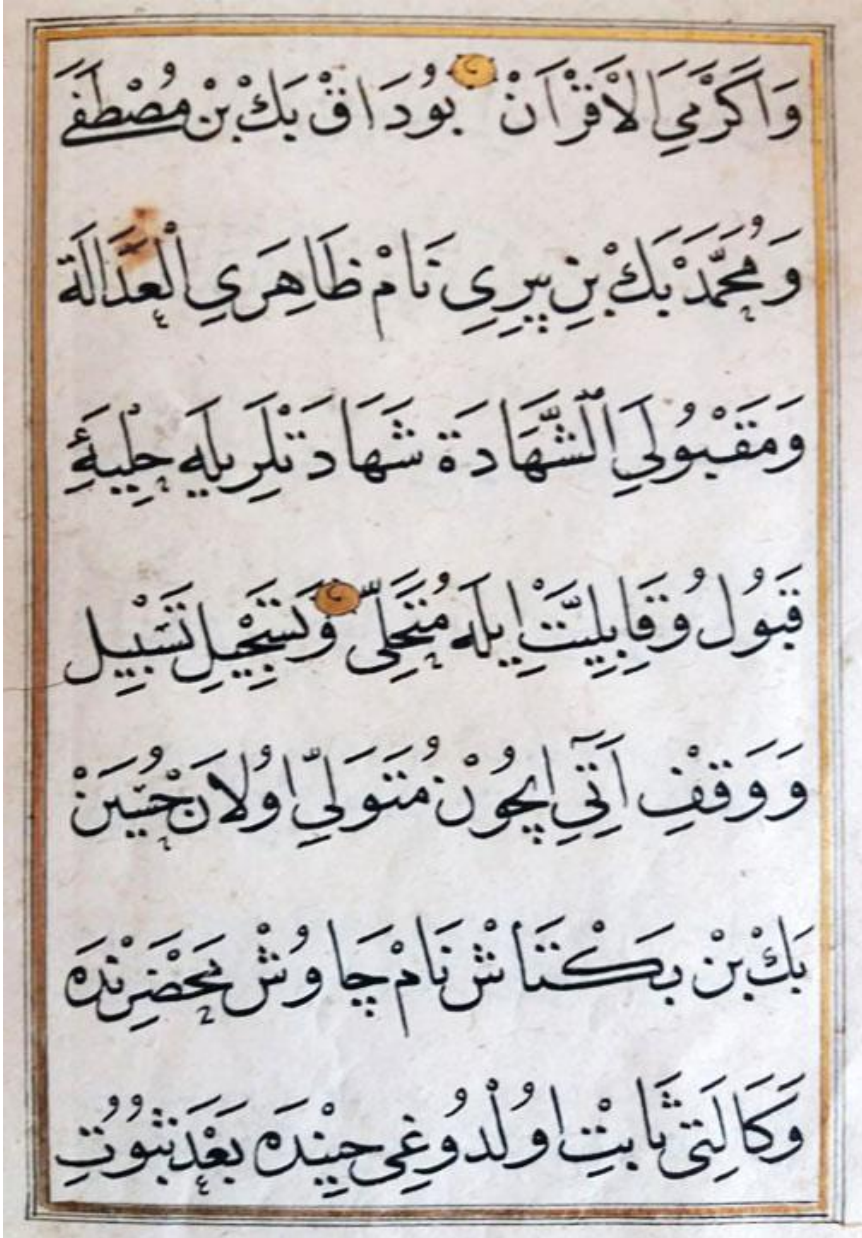 وَاَكْرَمَيِ الْاَقْرَانْ بُودَاقْ بَكْ بْنْ مُصْطَفَى
وَمُحَمَّدْ بَكْ بْنِ پِيرِي نَامْ ظَاهِرَيِ الْعَدَالَة
وَمَقْبُولَيِ الشَّهَادَة شَهَادَتْلَرِيلَه حِلْيَهِٔ
قَبُول وُقَابِلِيَّتِْ اِيلَه مُتَحَلِّى وَتَسْجِيلِ تَسْبِيل
وَوَقْفِ اٰتِي اِيچُونْ مُتَوَلِّي اُولَانْ حُسَيْنْ
بَكْ بْنْ بَكْتَاشْ نَامْ چَاوُشْ مَحْضَرِنْدَه
وَكَالَتِى ثَابِتْ اُولْدُوغِى حِينْدَه بَعْدَ ثُبُوتِ